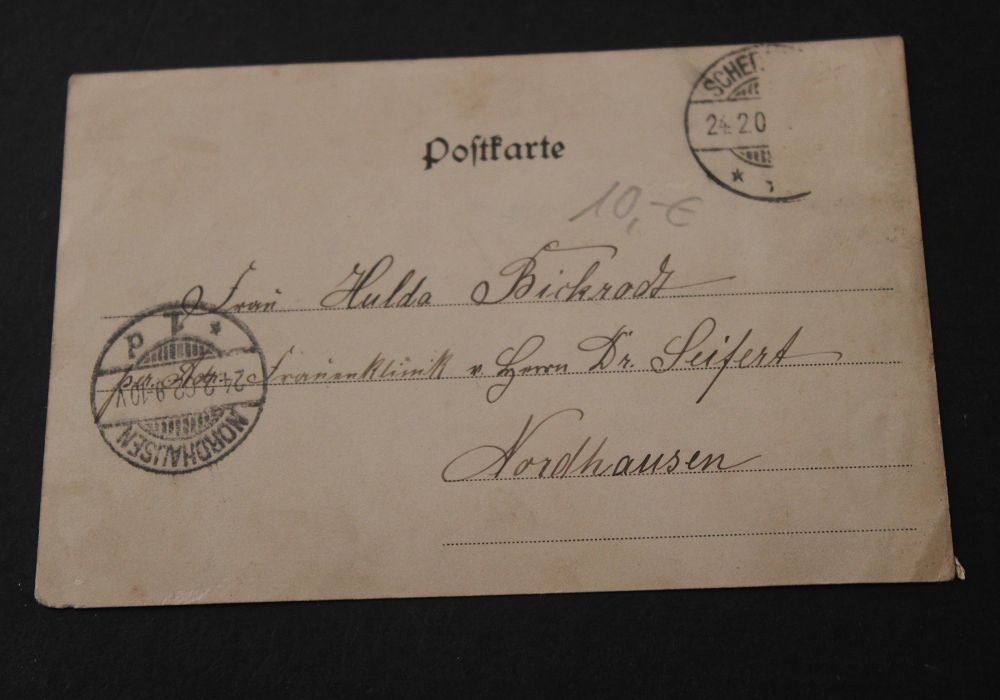 Postkarte
SCHER
24.2.0
10,-€
Frau Hulda Bickrodt
Frauenklinik v Herrn Dr. Seifert
Nordhausen
NORDHAUSEN
24.2.02.9-10V
p 1 *